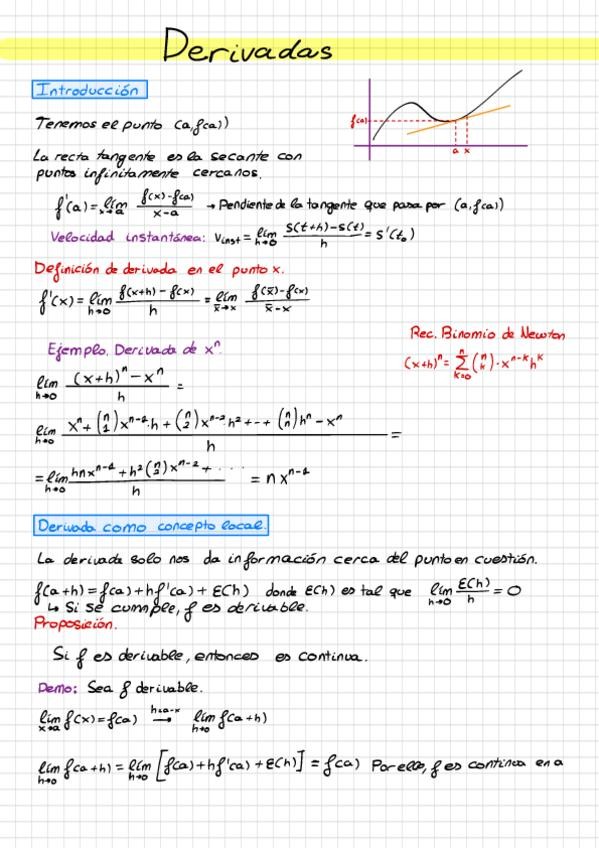 Derivadas
Introducción
Tenemos el punto (a, f(a))
f(a)
a x
La recta tangente es la secante con
puntos infinitamente cercanos.
f'(a) = lím x→a (f(x)-f(a))/(x-a) → Pendiente de la tangente que pasa por (a, f(a))
Velocidad instantánea: v inst = lím h→0 (s(t+h)-s(t))/h = s'(t₀)
Definición de derivada en el punto x.
f'(x) = lím h→0 (f(x+h) - f(x))/h = lím x̄→x (f(x̄)-f(x))/(x̄-x)
Rec. Binomio de Newton
(x+h)ⁿ = Σ k=0 n (n k) · xⁿ⁻ᵏ hᵏ
Ejemplo. Derivada de xⁿ.
lím h→0 ((x+h)ⁿ - xⁿ)/h =
lím h→0 (xⁿ + (n 1) xⁿ⁻¹·h + (n 2) xⁿ⁻² h² + ··· + (n n) hⁿ - xⁿ)/h =
= lím h→0 (hnxⁿ⁻¹ + h² (n 2) xⁿ⁻² + ····)/h = n xⁿ⁻¹
Derivada como concepto local.
La derivada solo nos da información cerca del punto en cuestión.
f(a+h) = f(a) + hf'(a) + Ɛ(h) donde Ɛ(h) es tal que lím h→0 Ɛ(h)/h = 0
↳ Si se cumple, f es derivable.
Proposición.
Si f es derivable, entonces es continua.
Demo: Sea f derivable.
lím x→a f(x) = f(a) h=a-x → lím h→0 f(a+h)
lím h→0 f(a+h) = lím h→0 [f(a) + hf'(a) + Ɛ(h)] = f(a) Por ello, f es continua en a